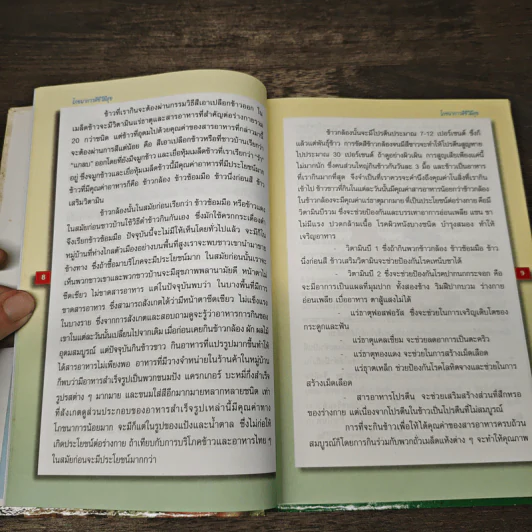 โภชนาการดีชีวีมีสุข
ข้าวที่เรากินจะต้องผ่านกรรมวิธีสีเอาเปลือกข้าวออก ใน
เมล็ดข้าวจะมีวิตามินแร่ธาตุและสารอาหารที่สำคัญต่อร่างกายรวม
20 กว่าชนิด แต่ข้าวที่อุดมไปด้วยคุณค่าของสารอาหารที่กล่าวมานี้
จะต้องผ่านการสีแต่น้อย คือ สีเอาเปลือกข้าวหรือที่ชาวบ้านเรียกว่า
"แกลบ" ออกโดยที่ยังมีจมูกข้าว และเยื่อหุ้มเมล็ดข้าวที่เราเรียกว่า "รำ"
อยู่ ซึ่งจมูกข้าวและเยื่อหุ้มเมล็ดข้าวนี้มีคุณค่าอาหารที่มีประโยชน์มาก
ข้าวที่มีคุณค่าอาหารก็คือ ข้าวกล้อง ข้าวซ้อมมือ ข้าวนึ่งก่อนสี ข้าว
เสริมวิตามิน
ข้าวกล้องนั้นในสมัยก่อนเรียกว่า ข้าวซ้อมมือ หรือข้าวแดง
ในสมัยก่อนชาวบ้านใช้วิธีตำข้าวกินกันเอง ซึ่งมักใช้ครกกระเดื่องตำ
จึงเรียกข้าวซ้อมมือ ปัจจุบันนี้จะไม่มีให้เห็นโดยทั่วไปแล้ว จะมีก็ใน
หมู่บ้านที่ห่างไกลตัวเมืองอย่างบนพื้นที่สูงเราจะพบชาวเขานำมาขาย
ข้างทาง ซึ่งถ้าซื้อมาบริโภคจะมีประโยชน์มาก ในสมัยก่อนนั้นเราจะ
เห็นพวกชาวเขาและพวกชาวบ้านจะมีสุขภาพพลานามัยดี หน้าตาไม่
ซีดเซียว ไม่ขาดสารอาหาร แต่ในปัจจุบันพบว่า ในบางพื้นที่มีการ
ขาดสารอาหาร ซึ่งสามารถสังเกตได้ว่ามีหน้าตาซีดเซียว ไม่แข็งแรง
ในบางราย ซึ่งจากการสังเกตและสอบถามดูจะรู้ว่าอาหารการกินของ
เขาในแต่ละวันนั้นเปลี่ยนไปจากเดิม เมื่อก่อนเคยกินข้าวกล้อง ผัก ผลไม้
อุดมสมบูรณ์ แต่ปัจจุบันกินข้าวขาว กินอาหารที่แปรรูปมากขึ้นทำให้
ได้สารอาหารไม่เพียงพอ อาหารที่มีวางจำหน่ายในร้านค้าในหมู่บ้าน
ก็พบว่ามีอาหารสำเร็จรูปเป็นพวกขนมปัง แครกเกอร์ บะหมี่กึ่งสำเร็จ
รูปรสต่าง ๆ มากมาย และขนมใส่สีอีกมากมายหลากหลายชนิด เท่า
ที่สังเกตดูส่วนประกอบของอาหารสำเร็จรูปเหล่านี้มีคุณค่าทาง
โภชนาการน้อยมาก จะมีก็แต่ในรูปของแป้งและน้ำตาล ซึ่งไม่ก่อให้
เกิดประโยชน์ต่อร่างกาย ถ้าเทียบกับการบริโภคข้าวและอาหารไทย ๆ
ในสมัยก่อนจะมีประโยชน์มากกว่า
8
โภชนาการดีชีวีมีสุข
ข้าวกล้องนั้นจะมีโปรตีนประมาณ 7-12 เปอร์เซนต์ ซึ่งก็
แล้วแต่พันธุ์ข้าว การขัดสีข้าวกล้องจนมีสีขาวจะทำให้โปรตีนสูญหาย
ไปประมาณ 30 เปอร์เซนต์ ถ้าดูอย่างผิวเผิน การสูญเสียเพียงแค่นี้
ไม่มากนัก ซึ่งคนส่วนใหญ่กินข้าวกันวันละ 3 มื้อ และข้าวเป็นอาหาร
ที่เรากินมากที่สุด จึงจำเป็นที่เราควรจะคำนึงถึงคุณค่าในสิ่งที่เรากิน
เข้าไป ข้าวขาวที่กินในแต่ละวันนั้นมีคุณค่าสารอาหารน้อยกว่าข้าวกล้อง
ในข้าวกล้องจะมีคุณค่าแร่ธาตุมากมาย ที่เป็นประโยชน์ต่อร่างกาย คือมี
วิตามินบีรวม ซึ่งจะช่วยป้องกันและบรรเทาอาการอ่อนเพลีย แขน ขา
ไม่มีแรง ปวดกล้ามเนื้อ โรคผิวหนังบางชนิด บำรุงสมอง ทำให้
เจริญอาหาร
- วิตามินบี 1 ซึ่งถ้ากินพวกข้าวกล้อง ข้าวซ้อมมือ ข้าว
นึ่งก่อนสี ข้าวเสริมวิตามินจะช่วยป้องกันโรคเหน็บชาได้
- วิตามินบี 2 ซึ่งจะช่วยป้องกันโรคปากนกกระจอก คือ
จะมีอาการเป็นแผลที่มุมปาก ทั้งสองข้าง ริมฝีปากบวม ร่างกาย
อ่อนเพลีย เบื่ออาหาร ตาสู้แสงไม่ได้
- แร่ธาตุฟอสฟอรัส ซึ่งจะช่วยในการเจริญเติบโตของ
กระดูกและฟัน
- แร่ธาตุแคลเซียม จะช่วยลดอาการเป็นตะคริว
- แร่ธาตุทองแดง จะช่วยในการสร้างเม็ดเลือด
- แร่ธาตุเหล็ก ช่วยป้องกันโรคโลหิตจางและช่วยในการ
สร้างเม็ดเลือด
- สารอาหารโปรตีน จะช่วยเสริมสร้างส่วนที่สึกหรอ
ของร่างกาย แต่เนื่องจากโปรตีนในข้าวเป็นโปรตีนที่ไม่สมบูรณ์
การที่จะกินข้าวเพื่อให้ได้คุณค่าของสารอาหารครบถ้วน
สมบูรณ์ก็โดยการกินร่วมกับพวกถั่วเมล็ดแห้งต่าง ๆ จะทำให้คุณภาพ
9